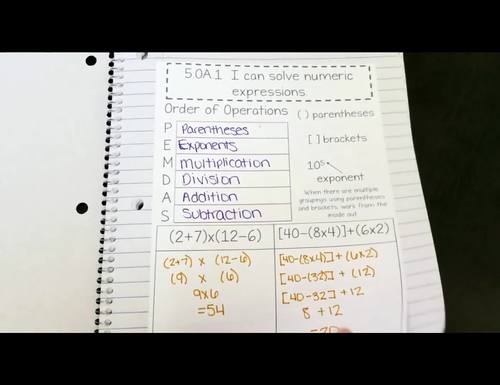 5.OA.1 I can solve numeric
expressions.
Order of Operations
P Parentheses
E Exponents
M multiplication
D Division
A Addition
S Subtraction
( ) parentheses
[ ] brackets
10⁵
exponent
When there are multiple
groupings using parentheses
and brackets, work from the
inside out
(2+7)x(12-6)
(2+7) x (12-6)
(9) x (6)
9x6
=54
[40-(8x4)]+(6x2)
[40-(8x4)]+(6x2)
[40-(32)] + (12)
[40-32] + 12
8 + 12
=20